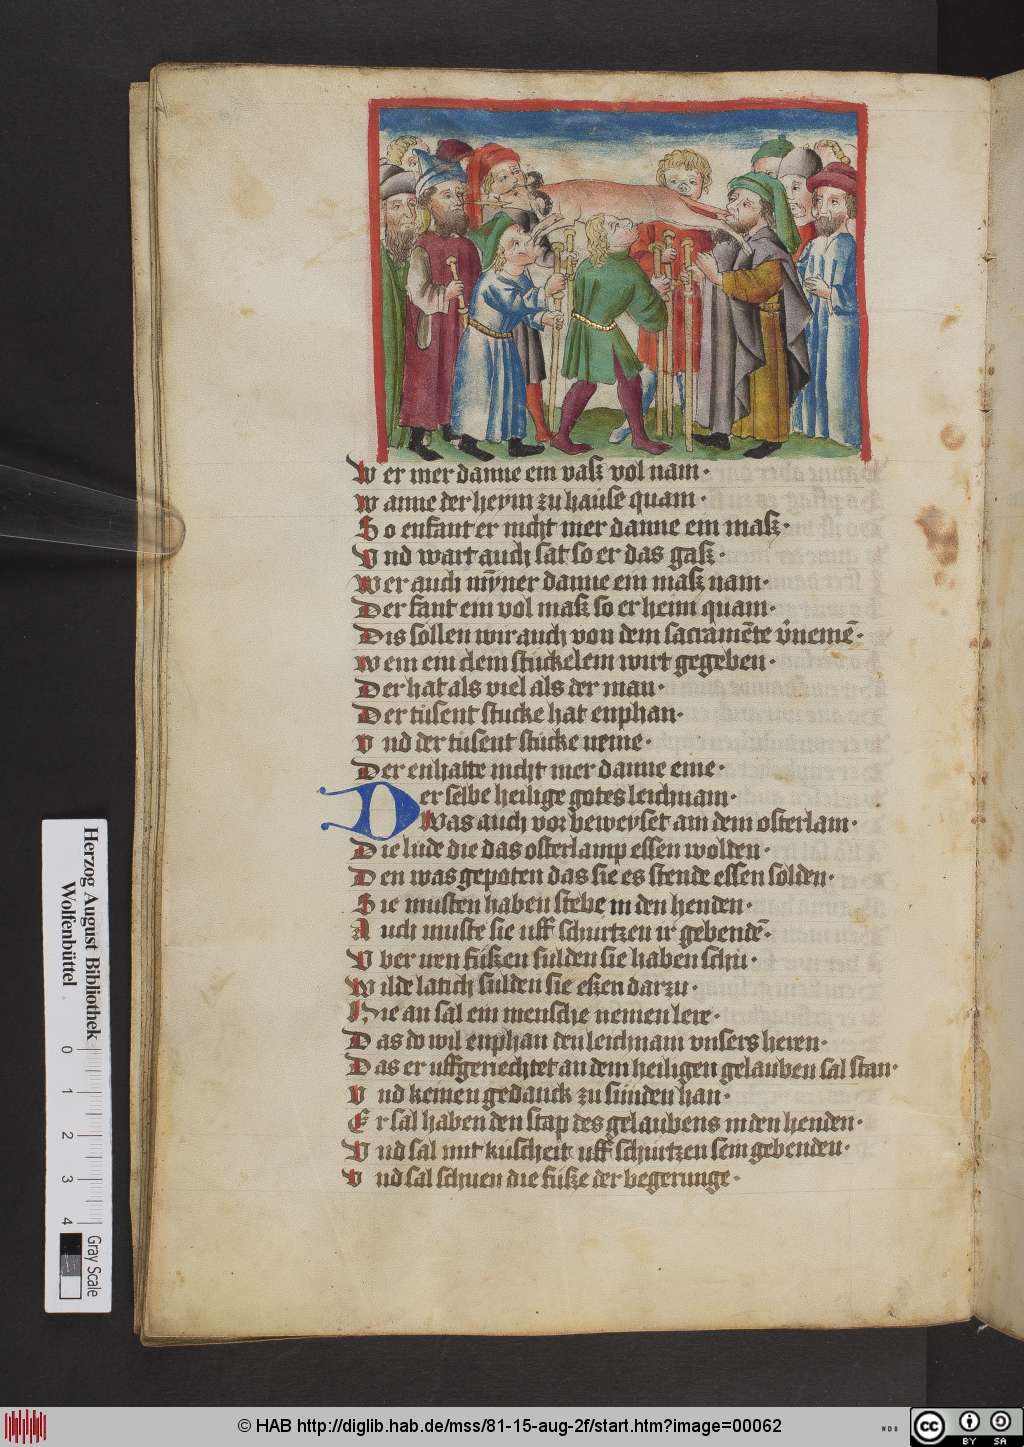 Wer mer danne ein vasz vol nam·
Wanne der heym zu hause quam·
So enfant er nicht mer danne ein masz·
Vnd wart auch sat so er das gasz·
Wer auch mÿner danne ein masz nam·
Der fant ein vol masz so er heim quam·
Dis söllen wir auch von dem sacramēte v̄nemē·
Wem ein clein stückelein wirt gegeben·
Der hat als viel als der man·
Der tusent stucke hat enphan·
Vnd der tusent stücke neme·
Der enhatte nicht mer danne eine·
Der selbe heilige gotes leichnam·
Was auch vor beweyset am dem osterlam·
Die lude die das osterlamp essen wolden·
Den was gepoten das sie es stende essen solden·
Sie musten haben stebe in den henden·
Auch muste sie uff schurtzen ir gebendē·
Vber uen füszen sulden sie haben schu·
Wilde latich sulden sie eszen darzu·
Hie an sal ein mensche nemen lere·
Das do wil enphan den leichnam vnsers heren·
Das er uffgeriechtet an dem heiligen gelauben sal stan·
Vnd keinen gedanck zu sunden han·
Er sal haben den stap des gelaubens in den henden·
Vnd sal mit kuscheit uff schurtzen sein gebenden·
Vnd sal schuen die fusze der begerunge·
Herzog August Bibliothek
Wolfenbüttel
0 1 2 3 4
Gray Scale
© HAB http://diglib.hab.de/mss/81-15-aug-2f/start.htm?image=00062
WDB
cc BY SA